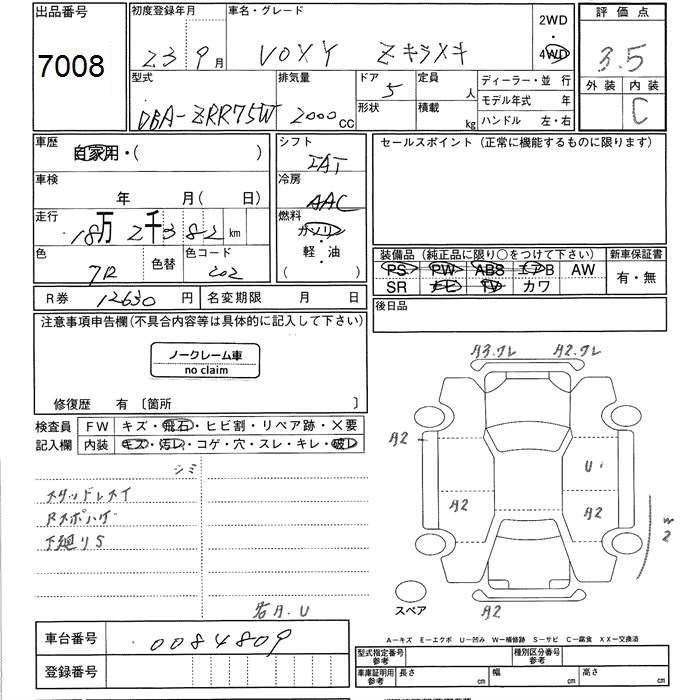 出品番号 初度登録年月 車名・グレード 2WD・4WD 評価点
7008 23 9月 VOXY Zキラメキ 3.5
外装 内装
C
型式 排気量 ドア 定員 ディーラー・並行
DBA-ZRR75W 2000cc 5 人 モデル年式 年
形状 積載 kg ハンドル 左・右
車歴 自家用・( ) シフト セールスポイント (正常に機能するものに限ります)
IAT
車検 年 月( 日) 冷房
AAC
走行 18万2千382km 燃料
ガソリン・軽・油 ( )
色 色替 色コード 202
装備品 (純正品に限り○をつけて下さい) 新車保証書
PS PW ABS エアB AW 有・無
SR ナビ TV カワ
R券 12630円 名変期限 月 日 後日品
注意事項申告欄(不具合内容等は具体的に記入して下さい)
ノークレーム車
no claim
修復歴 有 〔箇所 〕
検査員 FW キズ・飛石・ヒビ割・リペア跡・×要
記入欄 内装 キズ・汚レ・コゲ・穴・スレ・キレ・破レ
シミ
スタッドレスイ
Rスポハゲ
下廻りS
若A.U
A3.ワレ A2.ワレ
A2
U
A2 A2
W2
スペア A2
A-キズ E-エクボ U-凹み W-補修跡 S-サビ C-腐食 XX-交換済
車台番号 0084809
登録番号
型式指定番号 参考 種別区分番号 参考
車庫証明用 参考 長さ cm 幅 cm 高さ cm